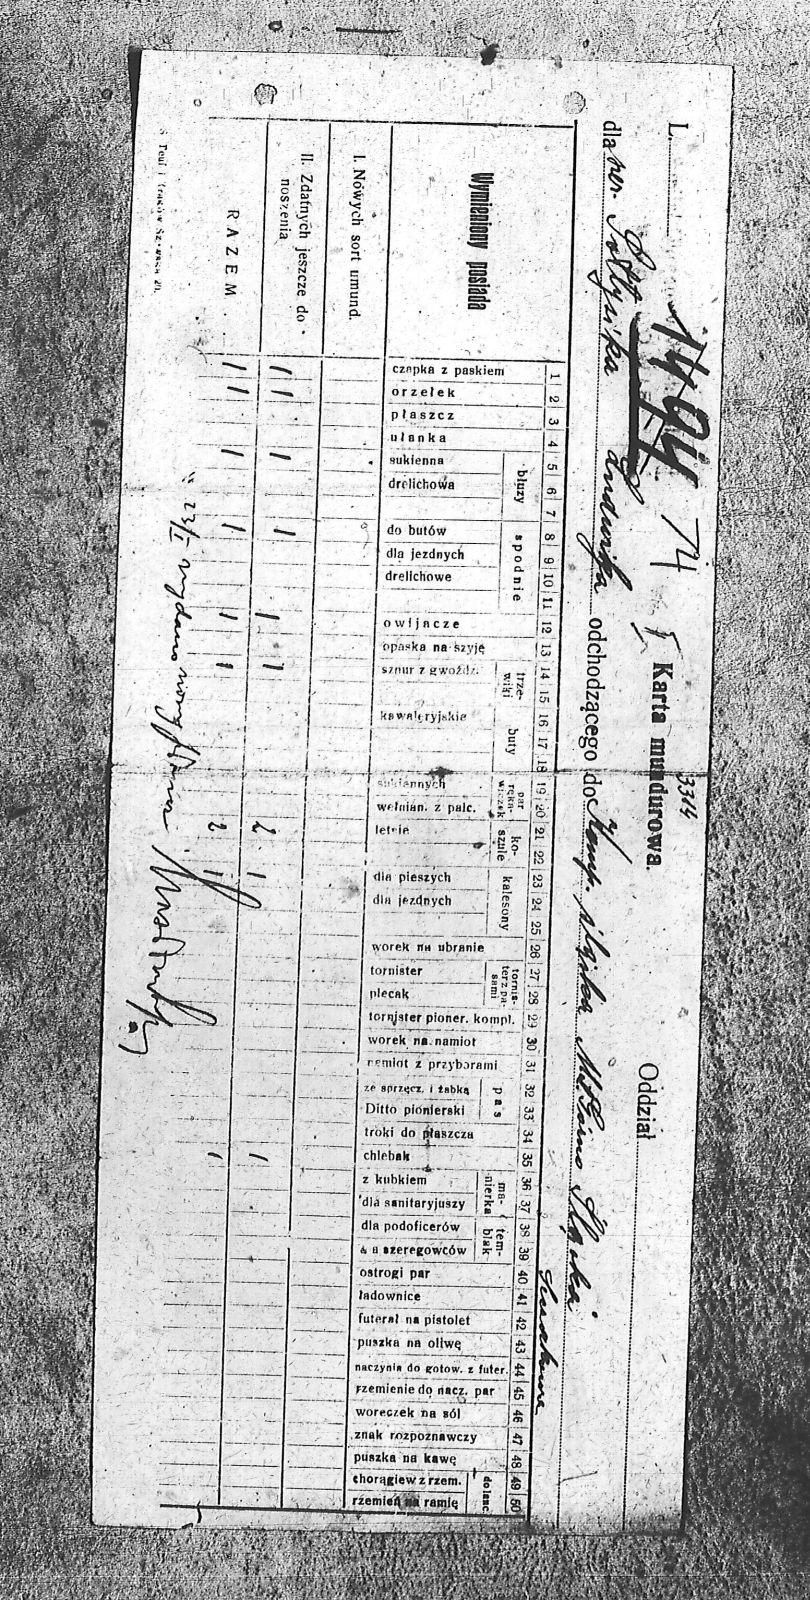 L.
1494 74
3314
Karta mundurowa.
Oddział
dla szer. Andrzeja odchodzącego do Komp.
Wymieniony posiada
1 | 2 | 3 | 4 | 5 | 6 | 7 | 8 | 9 | 10 | 11 | 12 | 13 | 14 | 15 | 16 | 17 | 18 | 19 | 20 | 21 | 22 | 23 | 24 | 25 | 26 | 27 | 28 | 29 | 30 | 31 | 32 | 33 | 34 | 35 | 36 | 37 | 38 | 39 | 40 | 41 | 42 | 43 | 44 | 45 | 46 | 47 | 48 | 49 | 50
czapka z paskiem
orzełek
płaszcz
ułanka
bluzy
sukienna
drelichowa
spodnie
do butów
dla jezdnych
drelichowe
owijacze
opaska na szyję
trze-
wiki
sznur z gwoźdz.
buty
kawaleryjskie
par
ręka-
wiczek
sukiennych
wełnian. z palc.
ko-
szule
letnie
kalesony
dla pieszych
dla jezdnych
worek na ubranie
tornis-
terz.pa-
sami
tornister
plecak
tornister pioner. kompl.
worek na namiot
namiot z przyborami
pas
ze sprzęcz. i żabką
Ditto pionierski
troki do płaszcza
chlebak
ma-
nierka
z kubkiem
dla sanitaryjuszy
tem-
blak
dla podoficerów
szeregowców
ostrogi par
ładownice
futerał na pistolet
puszka na oliwę
naczynia do gotow. z futer.
rzemienie do nacz. par
woreczek na sól
znak rozpoznawczy
puszka na kawę
do lanc.
chorągiew z rzem.
rzemień na ramię
I. Nowych sort umund.
II. Zdatnych jeszcze do
noszenia
1 1 1 1 1 1 2 1 1
RAZEM
1 1 1 1 1 1 2 1 1
23/I wydano